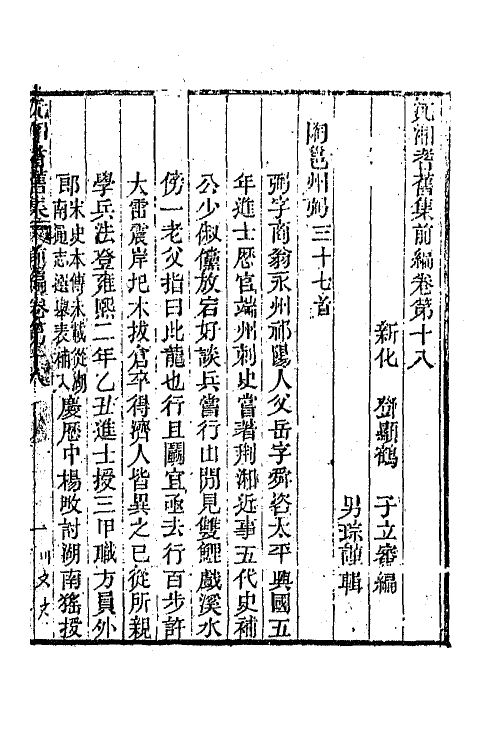 沅湘耆舊集前編卷第十八
新化 鄧顯鶴 子立審編
男琮 輯
陶邕州弼三十七首
弼字商翁永州祁陽人父岳字舜咨太平興國五
年進士歷官端州刺史嘗著荆湘近事五代史補
公少俶儻放宕好談兵嘗行山間見雙鯉戲溪水
傍一老父指曰此龍也行且鬭宜亟去行百步許
大雷震岸圯木拔倉卒得濟人皆異之已從所親
學兵法登雍熙二年乙丑進士授三甲職方員外
郎宋史本傳未載從湖
南通志選舉表補入慶歷中楊畋討湖南猺授
沅湘耆舊集前編卷第十八 一